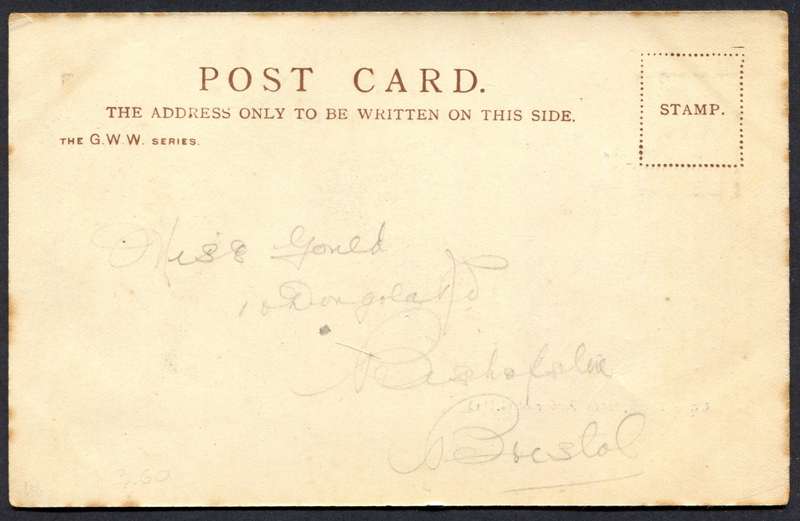 POST CARD.
THE ADDRESS ONLY TO BE WRITTEN ON THIS SIDE.
STAMP.
THE G.W.W. SERIES.
Miss Gould
10 Dongola Rd
Bishopston
Bristol
3.60